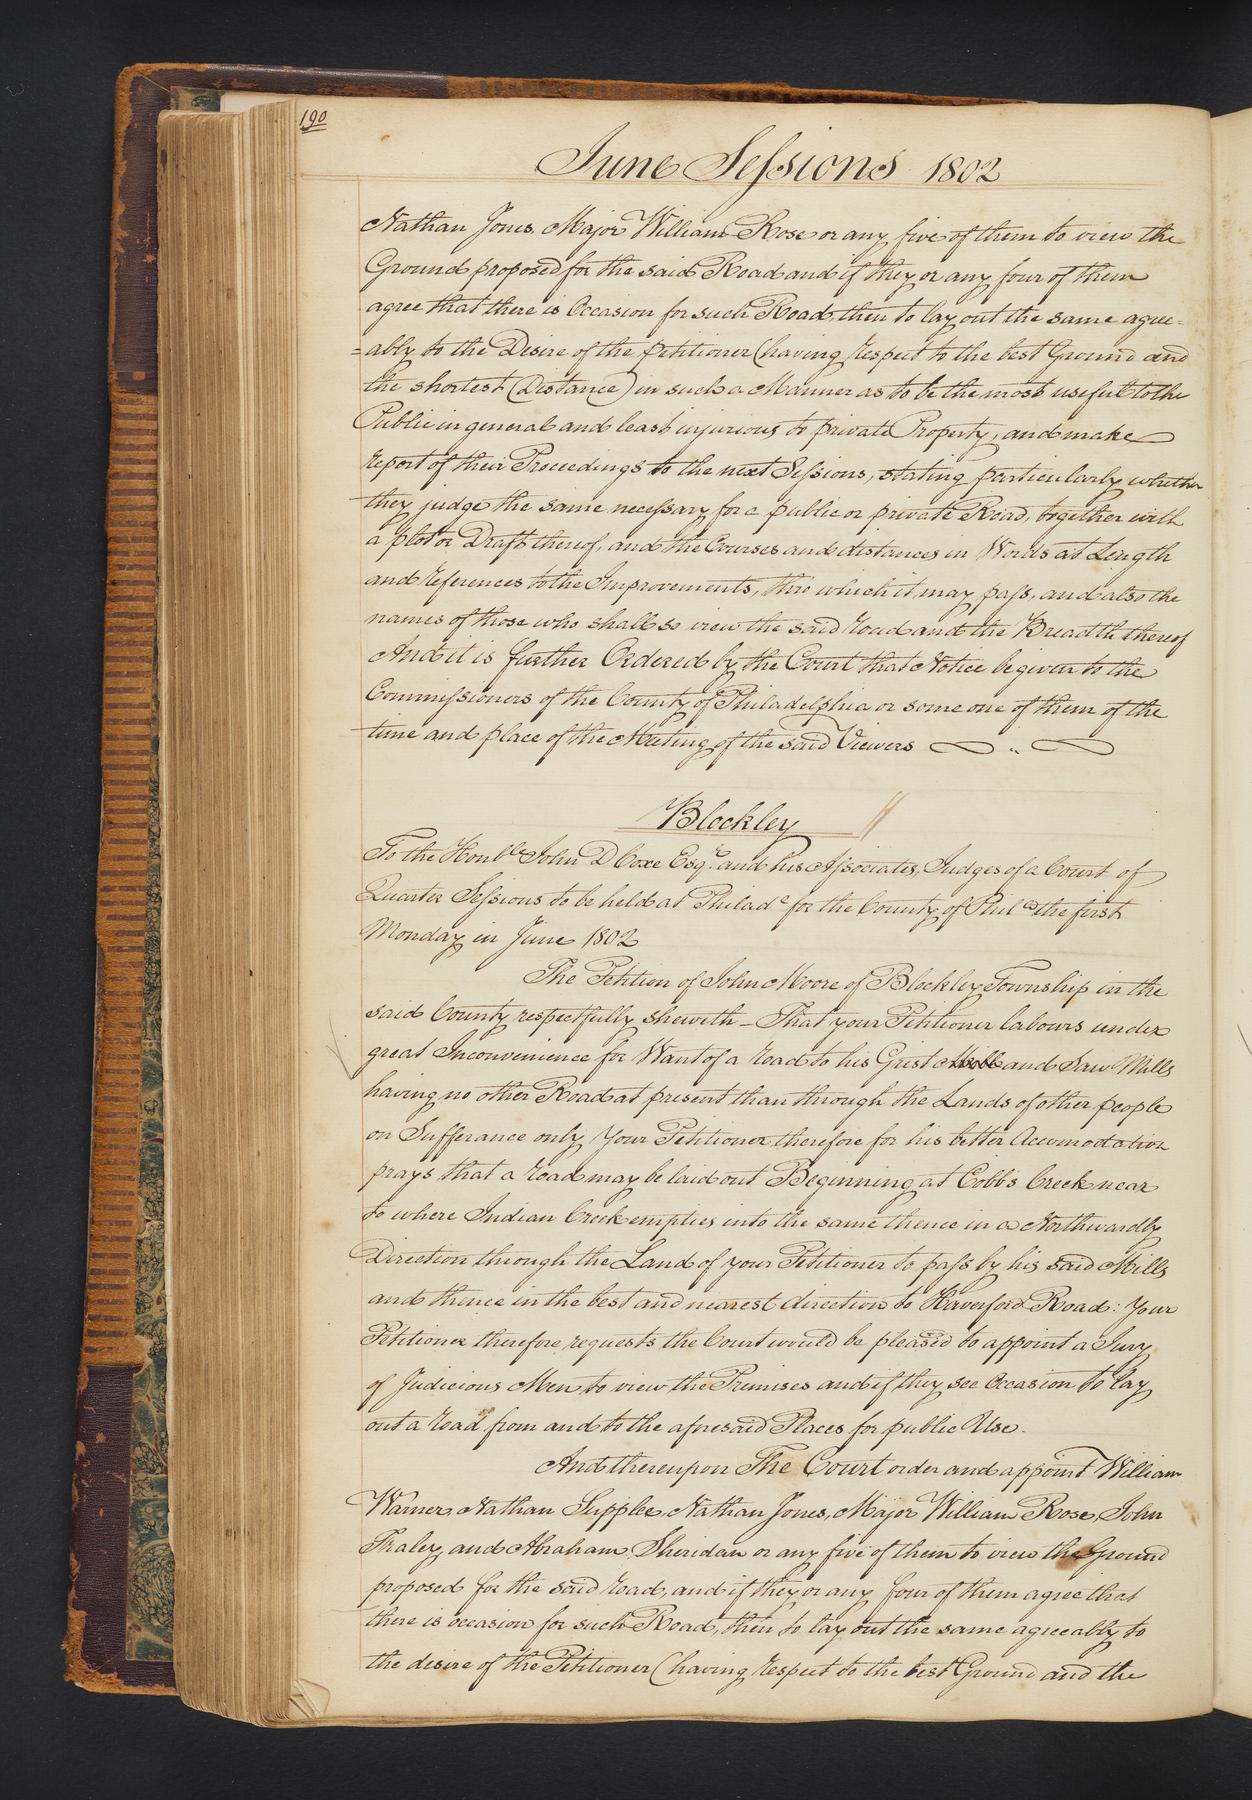 190
June Sessions 1802
Nathan Jones, Major William Rose or any five of them to view the
Ground proposed for the said Road and if they or any four of them
agree that there is Occasion for such Road, then to lay out the same agree-
=ably to the Desire of the petitioner (having respect to the best Ground and
the shortest Distance) in such a Manner as to be the most useful to the
Public in general and least injurious to private Property, and make
report of their Proceedings to the next Sessions, stating particularly whether
they judge the same necessary for a public or private Road, together with
a plot or Draft thereof, and the Courses and distances in Words at Length
and references to the Improvements, thro which it may pass, and also the
names of those who shall so view the said road and the Breadth thereof
And it is further Ordered by the Court that Notice be given to the
Commissioners of the County of Philadelphia or some one of them of the
time and place of the Meeting of the said Viewers
Blockley
To the Honble John D Coxe Esqr. and his Associates, Judges of a Court of
Quarter Sessions to be held at Philada for the County of Phila the first
Monday in June 1802
The Petition of John Moore of Blockley Township in the
said County respectfully sheweth - That your Petitioner labours under
great Inconvenience for Want of a road to his Grist and Saw Mills
having no other Road at present than through the Lands of other people
on Sufferance only Your Petitioner therefore for his better Accomodation
prays that a road may be laid out Beginning at Cobbs Creek near
to where Indian Creek empties into the same thence in a Northwardly
Direction through the Land of your Petitioner to pass by his said Mills
and thence in the best and nearest direction to Haverford Road: Your
Petitioner therefore requests the Court would be pleased to appoint a Jury
of Judicious Men to view the Premises and if they see Occasion to lay
out a road from and to the aforesaid Places for public Use.
And thereupon The Court order and appoint William
Warner, Nathan Supplee, Nathan Jones, Major William Rose, John
Fraley, and Abraham Sheridan or any five of them to view the Ground
proposed for the said road, and if they or any four of them agree that
there is occasion for such Road, then to lay out the same agreeably to
the desire of the Petitioner (having respect to the best Ground and the